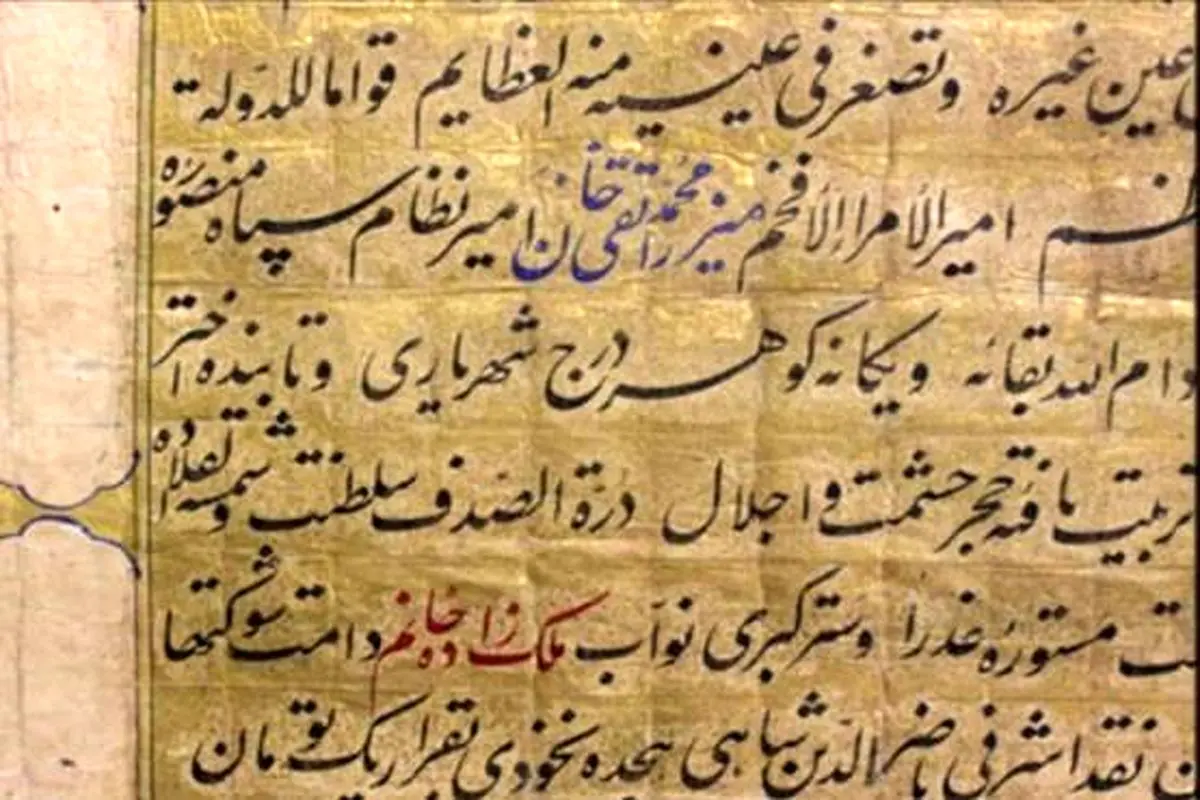 عین غیره وتصغر فی عینیه منه العظایم قواما للدولة
امیر الأمراء الأفخم میرزا محمد تقی خان امیر نظام سپاه منصوره
دام الله بقائه ویکانه کوهر درج شهریاری وتابنده اختر
تربیت یافته حجر حشمت و اجلال درة الصدف سلطنت وشمسه القلاده
مستوره عذرا وستر کبری نواب ملک زاده خانم دامت شوکتها
نقد اشرفی ناصر الدین شاهی هجده نخودی بقرار یک تومان